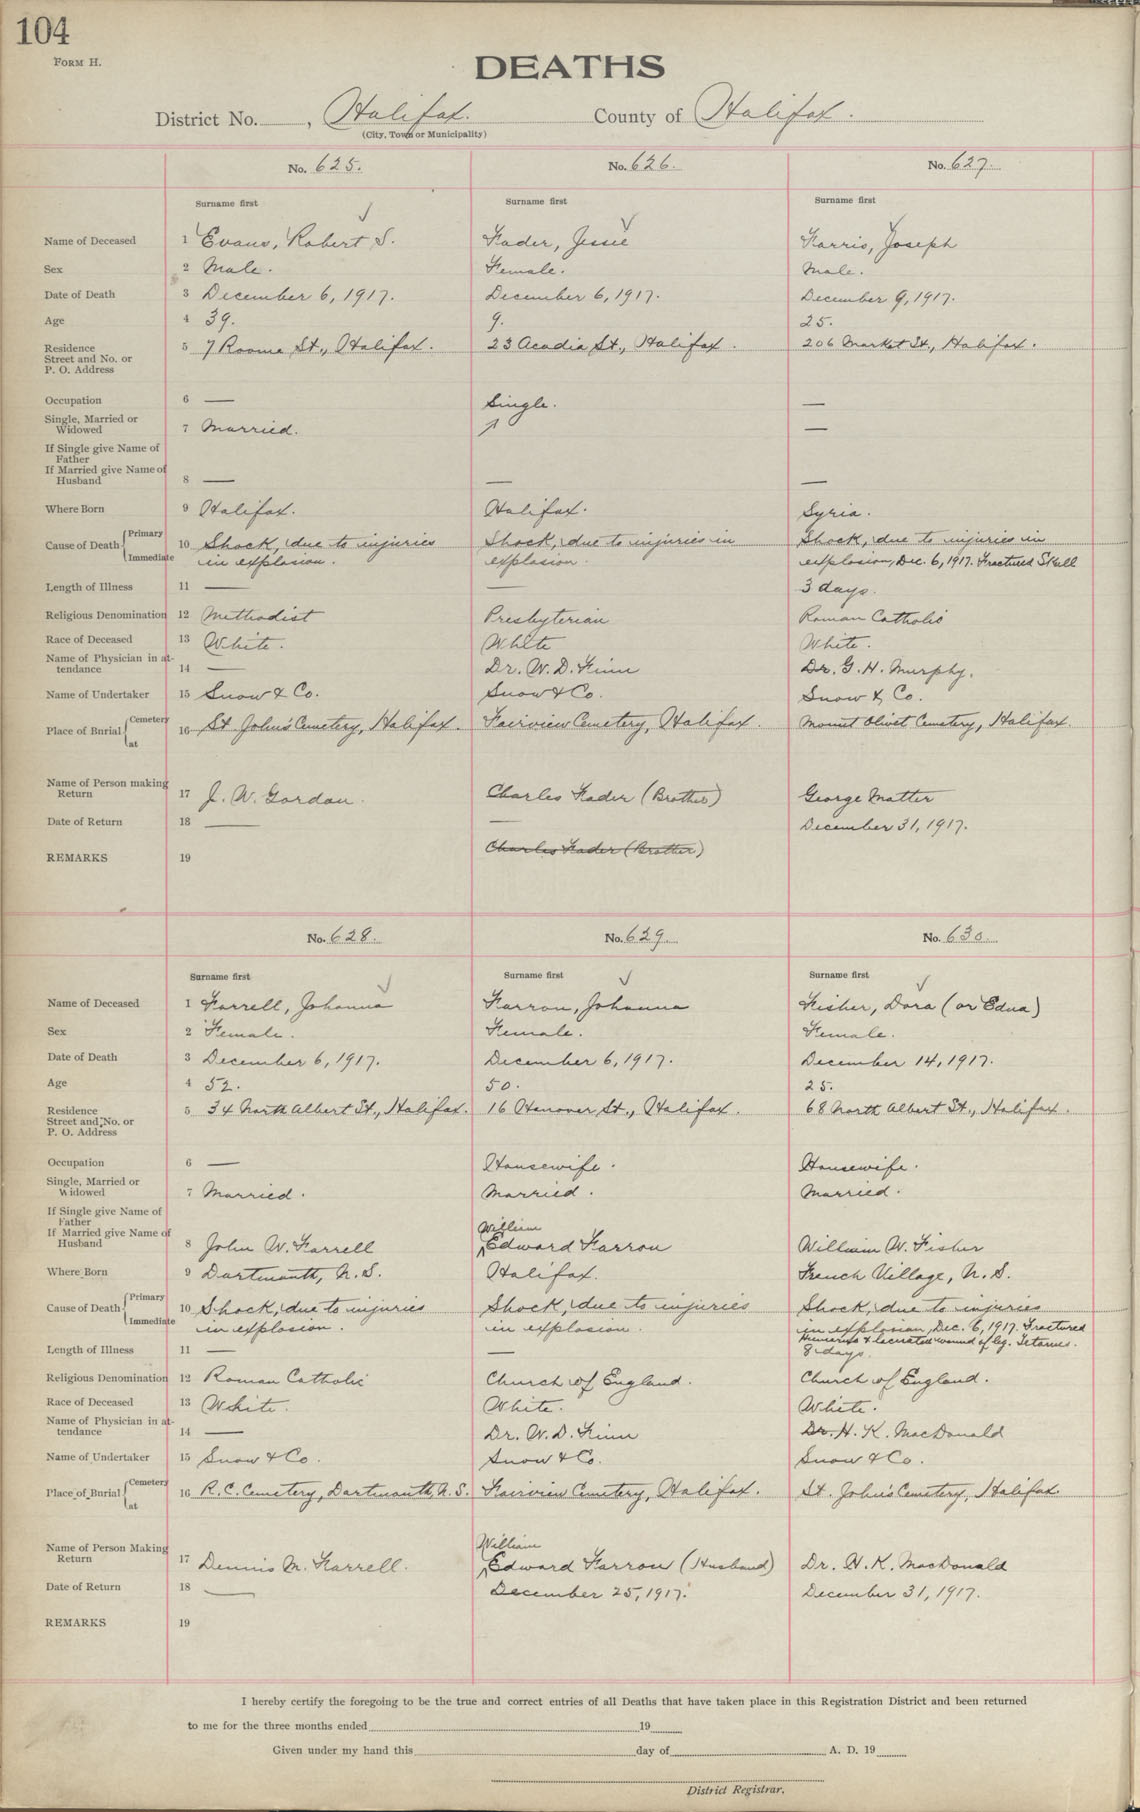 104
FORM H.
DEATHS
District No. , Halifax. County of Halifax.
(City, Town or Municipality)
No. 625. No. 626. No. 627.
Surname first Surname first Surname first
Name of Deceased 1 Evans, Robert S. Fader, Jessie Farris, Joseph
Sex 2 Male. Female. Male.
Date of Death 3 December 6, 1917. December 6, 1917. December 9, 1917.
Age 4 39. 9. 25.
Residence 5 7 Roome St., Halifax. 23 Acadia St., Halifax. 206 Market St., Halifax.
Street and No. or
P. O. Address
Occupation 6 — Single. —
Single, Married or
Widowed 7 Married. —
If Single give Name of
Father
If Married give Name of
Husband 8 — — —
Where Born 9 Halifax. Halifax. Syria.
Cause of Death { Primary 10 Shock, due to injuries Shock, due to injuries in Shock, due to injuries in
Immediate in explosion. explosion. explosion, Dec. 6, 1917. Fractured Skull
Length of Illness 11 — — 3 days.
Religious Denomination 12 Methodist Presbyterian Roman Catholic
Race of Deceased 13 White. White White.
Name of Physician in at-
tendance 14 — Dr. W. D. Finn Dr. G. H. Murphy.
Name of Undertaker 15 Snow & Co. Snow & Co. Snow & Co.
Place of Burial { Cemetery 16 St. John's Cemetery, Halifax. Fairview Cemetery, Halifax. Mount Olivet Cemetery, Halifax.
at
Name of Person making
Return 17 J. W. Gordon. Charles Fader (Brother) George Matter
Date of Return 18 — — December 31, 1917.
REMARKS 19 Charles Fader (Brother)
No. 628. No. 629. No. 630.
Surname first Surname first Surname first
Name of Deceased 1 Farrell, Johanna Farron, Johanna Fisher, Dora (or Edna)
Sex 2 Female. Female. Female.
Date of Death 3 December 6, 1917. December 6, 1917. December 14, 1917.
Age 4 52. 50. 25.
Residence 5 34 North Albert St., Halifax. 16 Hanover St., Halifax. 68 North Albert St., Halifax.
Street and No. or
P. O. Address
Occupation 6 — Housewife. Housewife.
Single, Married or
Widowed 7 Married. Married. Married.
If Single give Name of
Father
If Married give Name of William
Husband 8 John W. Farrell Edward Farron William W. Fisher
Where Born 9 Dartmouth, N. S. Halifax. French Village, N. S.
Cause of Death { Primary 10 Shock, due to injuries Shock, due to injuries Shock, due to injuries
Immediate in explosion. in explosion. in explosion, Dec. 6, 1917. Fractured
Humerus & lacerated wound of leg. Tetanus.
Length of Illness 11 — — 8 days.
Religious Denomination 12 Roman Catholic Church of England. Church of England.
Race of Deceased 13 White. White. White.
Name of Physician in at-
tendance 14 — Dr. W. D. Finn Dr. H. K. MacDonald
Name of Undertaker 15 Snow & Co. Snow & Co. Snow & Co.
Place of Burial { Cemetery 16 R. C. Cemetery, Dartmouth, N. S. Fairview Cemetery, Halifax. St. John's Cemetery, Halifax.
at
Name of Person Making William
Return 17 Dennis M. Farrell. Edward Farron (Husband) Dr. H. K. MacDonald
Date of Return 18 — December 25, 1917. December 31, 1917.
REMARKS 19
I hereby certify the foregoing to be the true and correct entries of all Deaths that have taken place in this Registration District and been returned
to me for the three months ended 19
Given under my hand this day of A. D. 19
District Registrar.